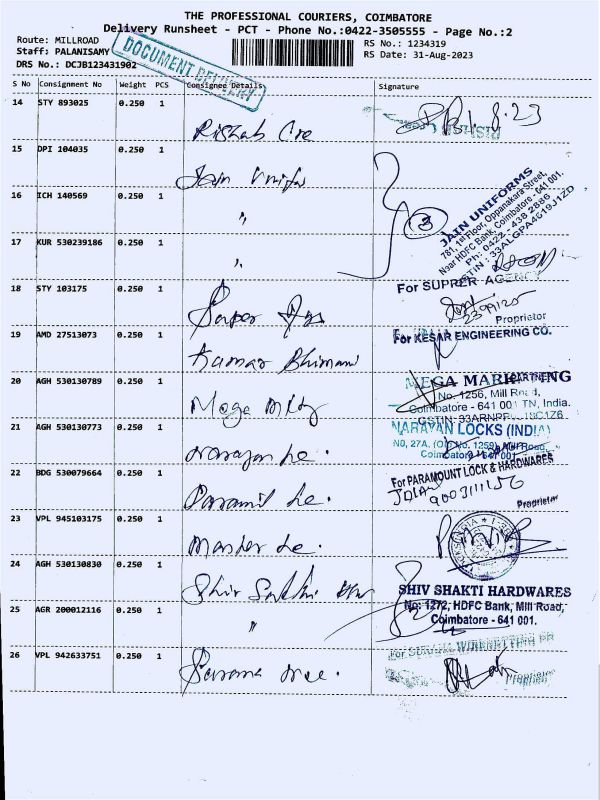 THE PROFESSIONAL COURIERS, COIMBATORE
Delivery Runsheet - PCT - Phone No.:0422-3505555 - Page No.:2
Route: MILLROAD
RS No.: 1234319
Staff: PALANISAMY
RS Date: 31-Aug-2023
DRS No.: DCJB123431902
DOCUMENT DELIVERY
S No Consignment No Weight PCS Consignee Details Signature
14 STY 893025 0.250 1
15 DPI 104035 0.250 1
Jain
16 ICH 140569 0.250 1
"
3
JAIN UNIFORMS
781, 1st Floor, Oppanakara Street,
Near HDFC Bank, Coimbatore - 641 001.
Ph: 0422 - 438 2886
17 KUR 530239186 0.250 1
"
For SUPRER AGENCY
Proprietor
18 STY 103175 0.250 1
19 AMD 27513073 0.250 1
Kumar Bhimani
For KESAR ENGINEERING CO.
20 AGH 530130789 0.250 1
Mega
MEGA MARKETING
No. 1256, Mill Road,
Coimbatore - 641 001 TN, India.
21 AGH 530130773 0.250 1
Narayan
NARAYAN LOCKS (INDIA)
NO, 27A. (Old No. 1259) Mill Road,
Coimbatore - 641 001
22 BDG 530079664 0.250 1
For PARAMOUNT LOCK & HARDWARES
9003111156
Proprietor
23 VPL 945103175 0.250 1
Master
24 AGH 530130830 0.250 1
Shiv Sakthi
SHIV SHAKTI HARDWARES
No: 1272, HDFC Bank, Mill Road,
Coimbatore - 641 001.
25 AGR 200012116 0.250 1
"
26 VPL 942633751 0.250 1
Proprietor